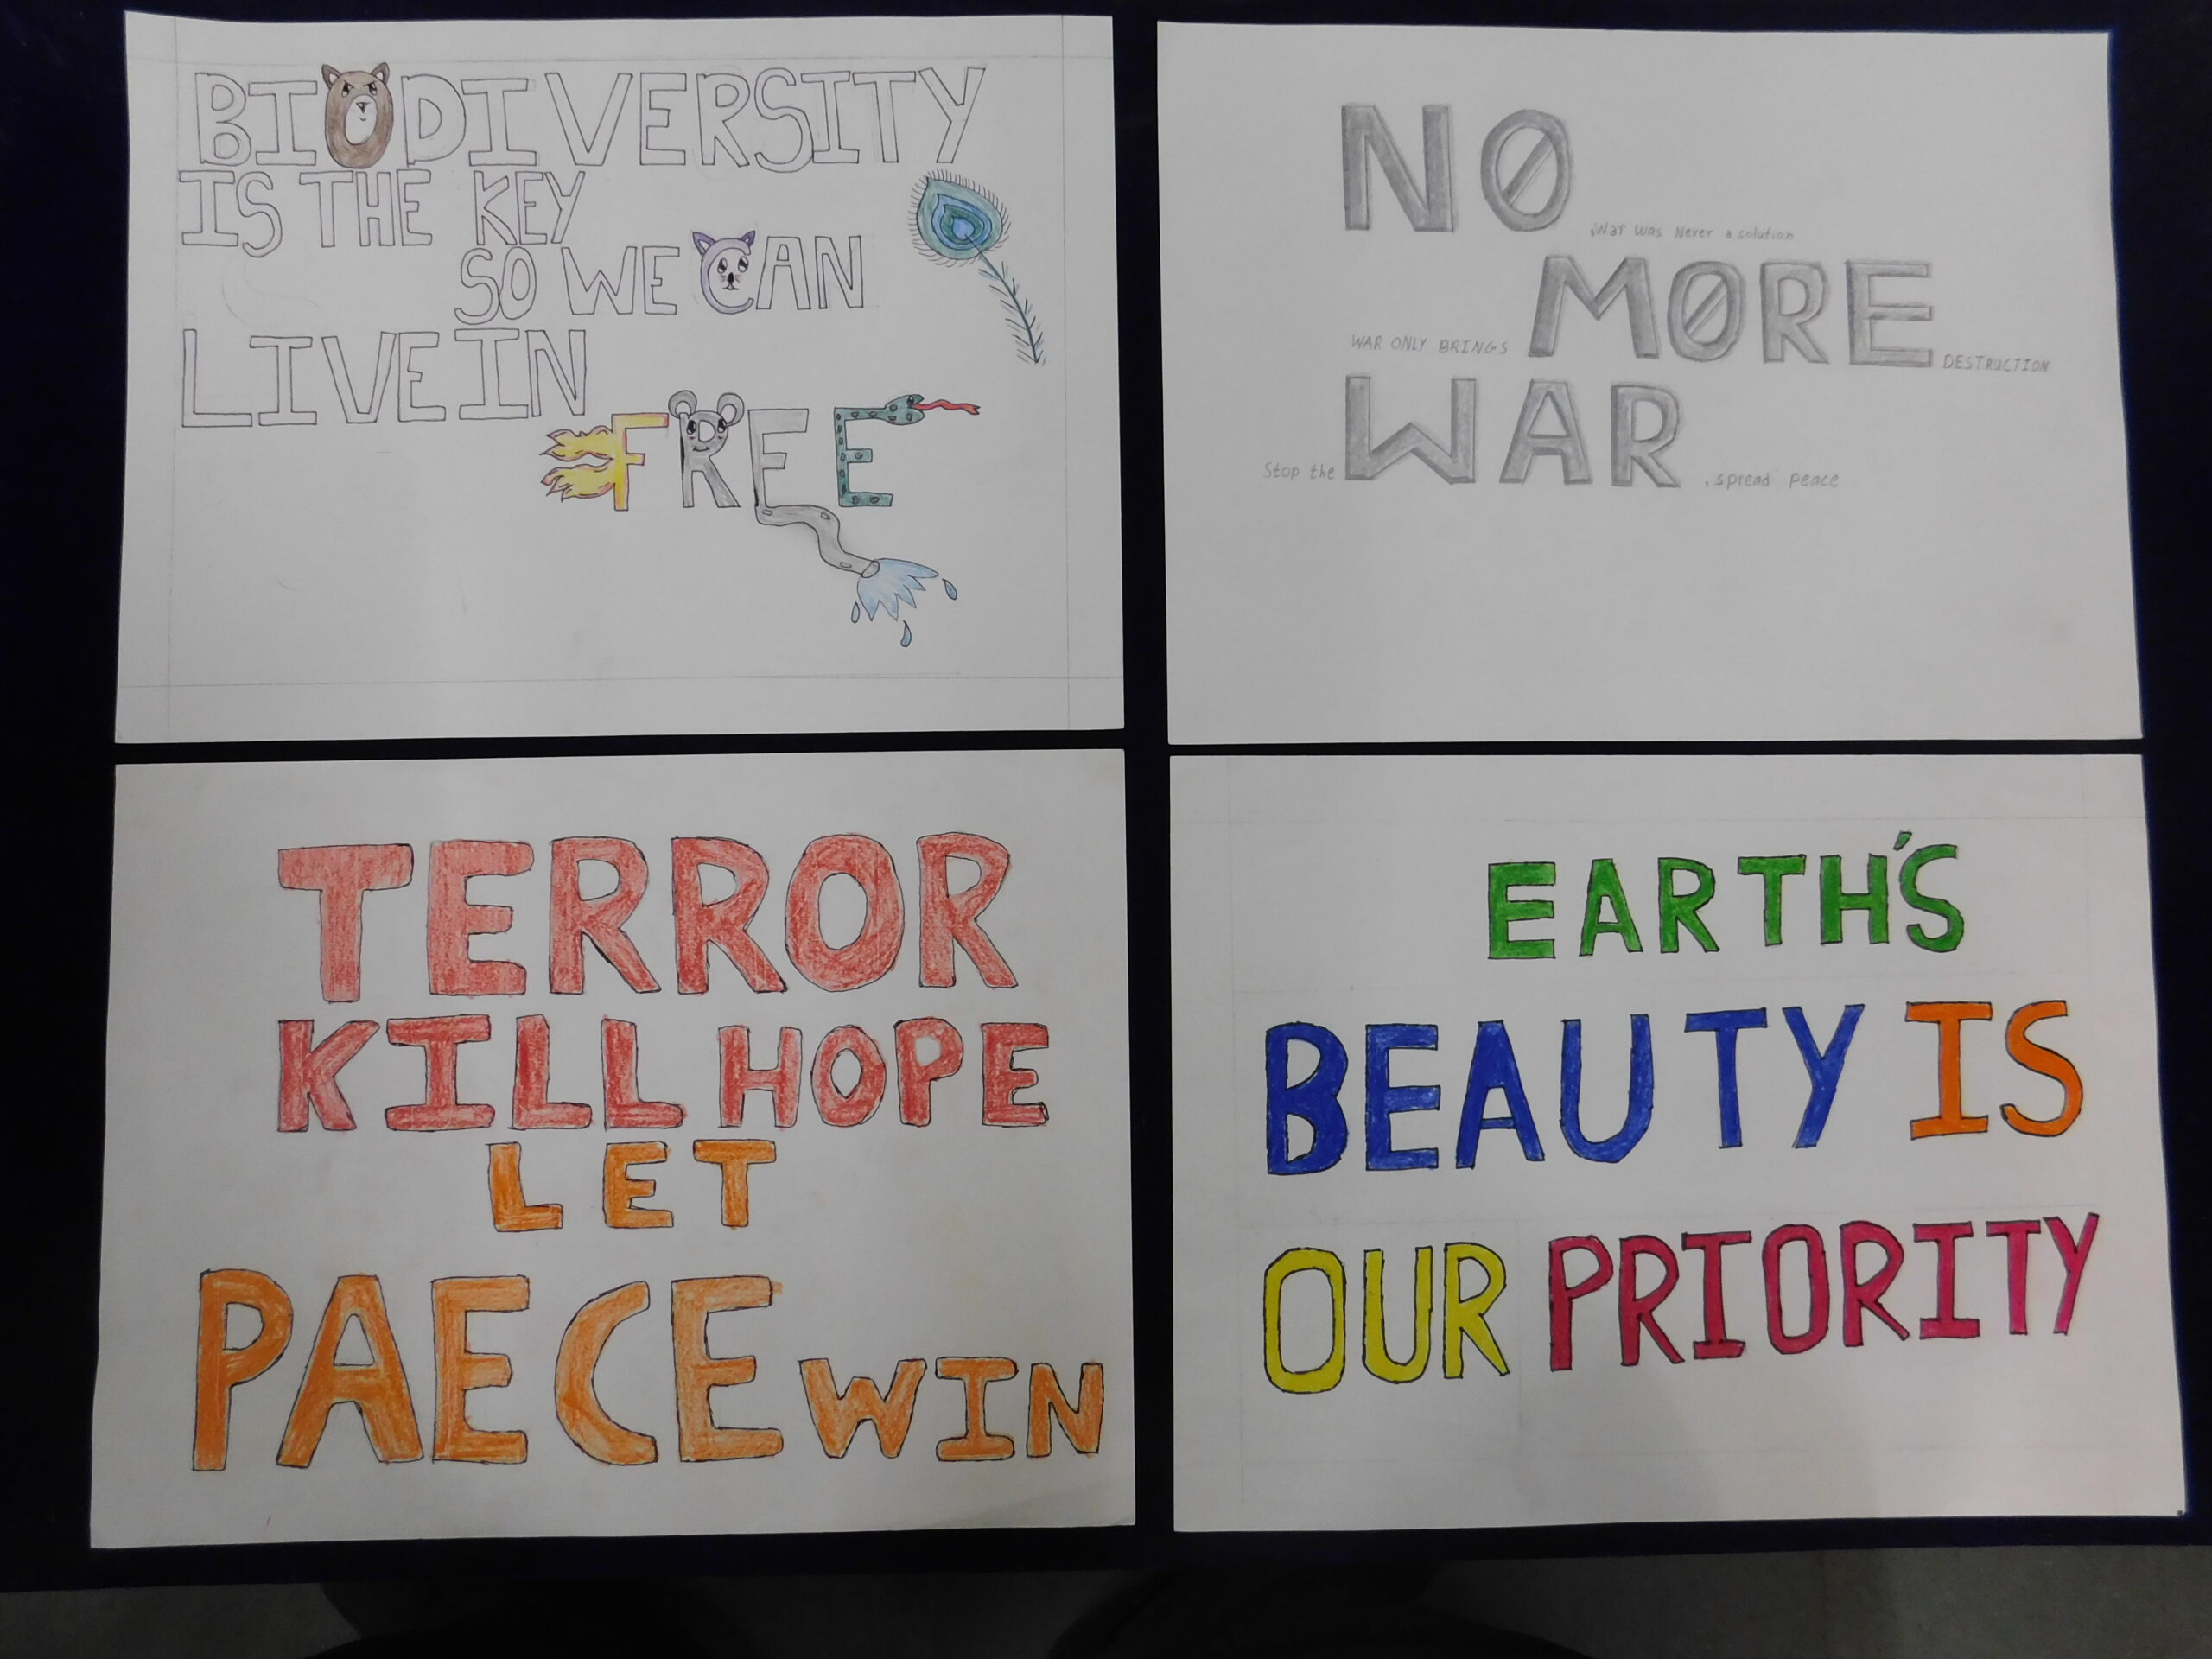 BIODIVERSITY
IS THE KEY
SO WE CAN
LIVE IN
FREE
NO
,War was Never a solution
MORE
WAR ONLY BRINGS
DESTRUCTION
WAR
Stop the
, spread peace
TERROR
KILL HOPE
LET
PAECE WIN
EARTH'S
BEAUTY IS
OUR PRIORITY